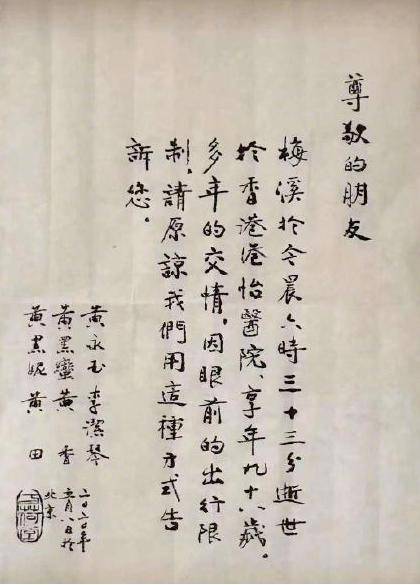 尊敬的朋友
梅溪於今晨六時三十三分逝世
於香港港怡醫院、享年九十八歲。
多年的交情，因眼前的出行限
制，請原諒我們用這種方式告
訴您。
黃永玉 李潔琴
黃黑蠻 黃香
黃黑妮 黃田
二〇二〇年
五月八日於
北京